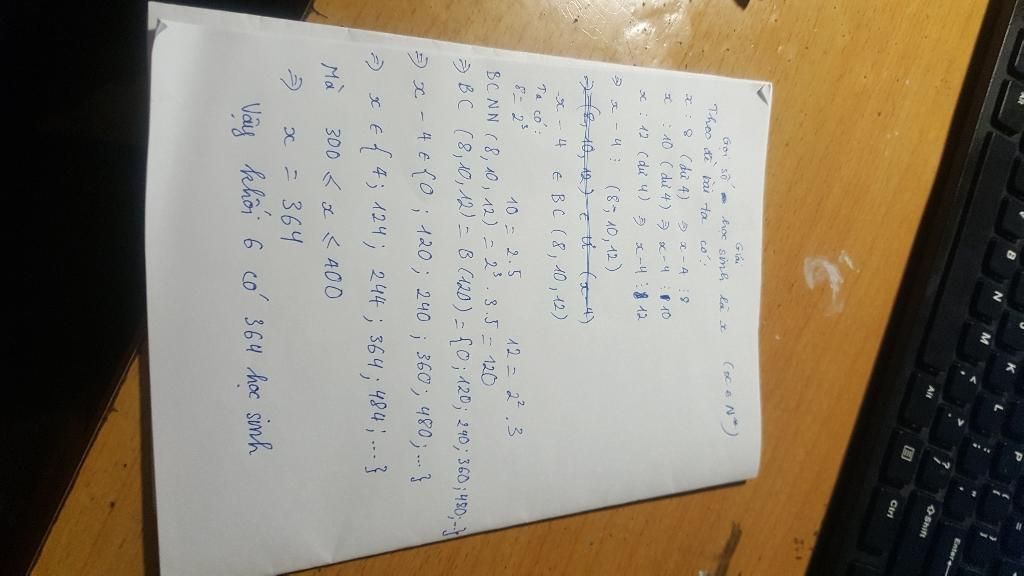 Giải
Gọi số học sinh là x (x ∈ N*)
Theo đề bài ta có:
x : 8 (dư 4) ⇒ x - 4 ⋮ 8
x : 10 (dư 4) ⇒ x - 4 ⋮ 10
x : 12 (dư 4) ⇒ x - 4 ⋮ 12
⇒ x - 4 ⋮ (8, 10, 12)
x - 4 ∈ BC (8, 10, 12)
Ta có:
8 = 2³ 10 = 2.5 12 = 2².3
BCNN (8, 10, 12) = 2³.3.5 = 120
⇒ BC (8, 10, 12) = B (120) = {0; 120; 240; 360; 480; ...}
⇒ x - 4 ∈ {0; 120; 240; 360; 480; ...}
⇒ x ∈ {4; 124; 244; 364; 484; ...}
Mà 300 < x < 400
⇒ x = 364
Vậy khối 6 có 364 học sinh
Alt
Ctrl
Shift
Enter
B
N
M
K
L
P